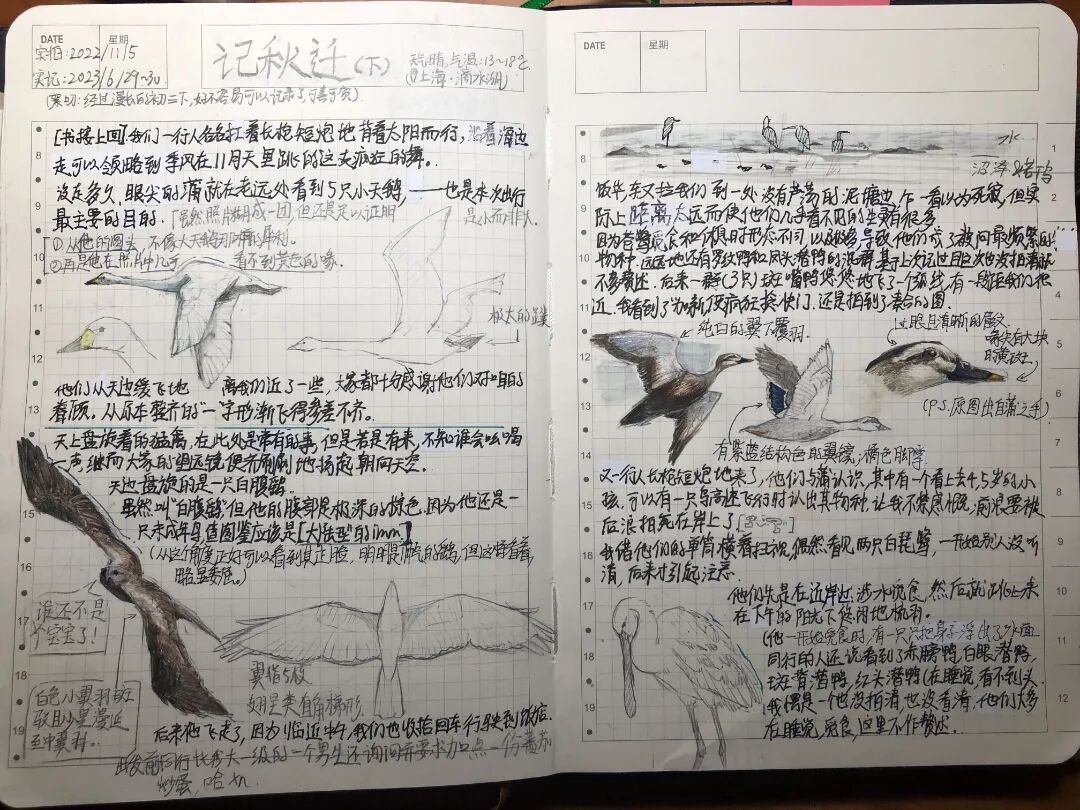 DATE
星期
实拍：2022/11/5
实记：2023/6/29~30
记秋迁（下）
天气:晴,气温:13~18℃
（@上海·滴水湖）
（第一切：经过漫长的初三下,好不容易可以记录了,可喜可贺）
[书接上回]我们一行人各各扛着长枪短炮地背着太阳而行，沿着海边
走可以领略到季风在11月天里跳的这支疯狂的舞。
没走多久，眼尖的蒲就在老远处看到5只小天鹅，——也是本次出行
最主要的目的。「虽然照片糊成一团,但还是足以证明 是小而非大。
①从他的圆头，不像大天鹅那样的犀利。
②再是他在照片中几乎 看不到黄色的喙。
极大的蹼
他们从天边缓飞地 离我们近了一些，大家都十分感谢他们对咱的
眷顾。从原本整齐的"一"字形渐飞得参差不齐。
天上盘旋着的猛禽，在此处是常有的事，但是若是有来，不知谁会吆喝
一声，继而大家的望远镜便齐刷刷地扬起朝向天空。
天边盘旋的是一只白腹鹞
虽然叫"白腹鹞"但他的腹部是极深的棕色，因为他还是一
只未成年鸟,值图鉴应该是[大陆型的imm]
（从这个角度正好可以看到其正脸，明明是 的鹞，但这样看着，
略显委屈。）
谁还不是
个宝宝了！
翼指5枚
翅呈类直角梯形
白色小翼羽斑
较日小星 漫延
至中翼羽。
后来他飞走了，因为临近中午，我们也收拾回车行驶到饭店。
出发前同行比我大一级的一个男生还询问需要求加点一份蕃茄
炒蛋，哈
DATE
星期
水
沼泽 鸭
饭毕，车又拉我们到一处没有芦荡的泥塘边，乍一看以为死寂，但实
际上距离太远而使他们几乎看不见的生灵有很多
因为苍鹭觅食和休息时形态不同，以 导致他们成了被问最频繁的
物种，远远地还有罗纹鸭和凤头潜鸭的混群，基于上次记过且这次没拍清就
不多赘述。后来一群（3只）斑嘴鸭悠悠地飞了一个弧线，有一段距我们很
近，我看到了加新,反疯狂按快门，还是拍到了凑合的图
纯白的翼下覆羽。
过眼且有 的 纹
喙尖有大块
的黄斑。
（P.S.原图出自蒲之手）
有紫蓝结构色的翼镜；橘色脚蹼
又一行人长枪短炮地来了，他们与蒲认识，其中有一个看上去4,5岁的小
孩，可以有一只鸟高速飞行时认出其物种，让我不禁感慨：前浪要被
后浪拍死在岸上了
我借他们的单筒横着扫视，偶然看见两只白琵鹭，一开始别人没听
清，后来才引起注意。
他们先是在近岸边涉水觅食，然后就跳上来
在下午的阳光下悠闲地梳羽。
（他一开始觅食时,有一只把身子浮出了水面
同行的人还说看到了赤膀鸭,白眼潜鸭,
斑背潜鸭,红头潜鸭（在睡觉看不到头
我偶是一个也没拍清也没看清，他们大多
在睡觉，觅食，这里不作赘述。